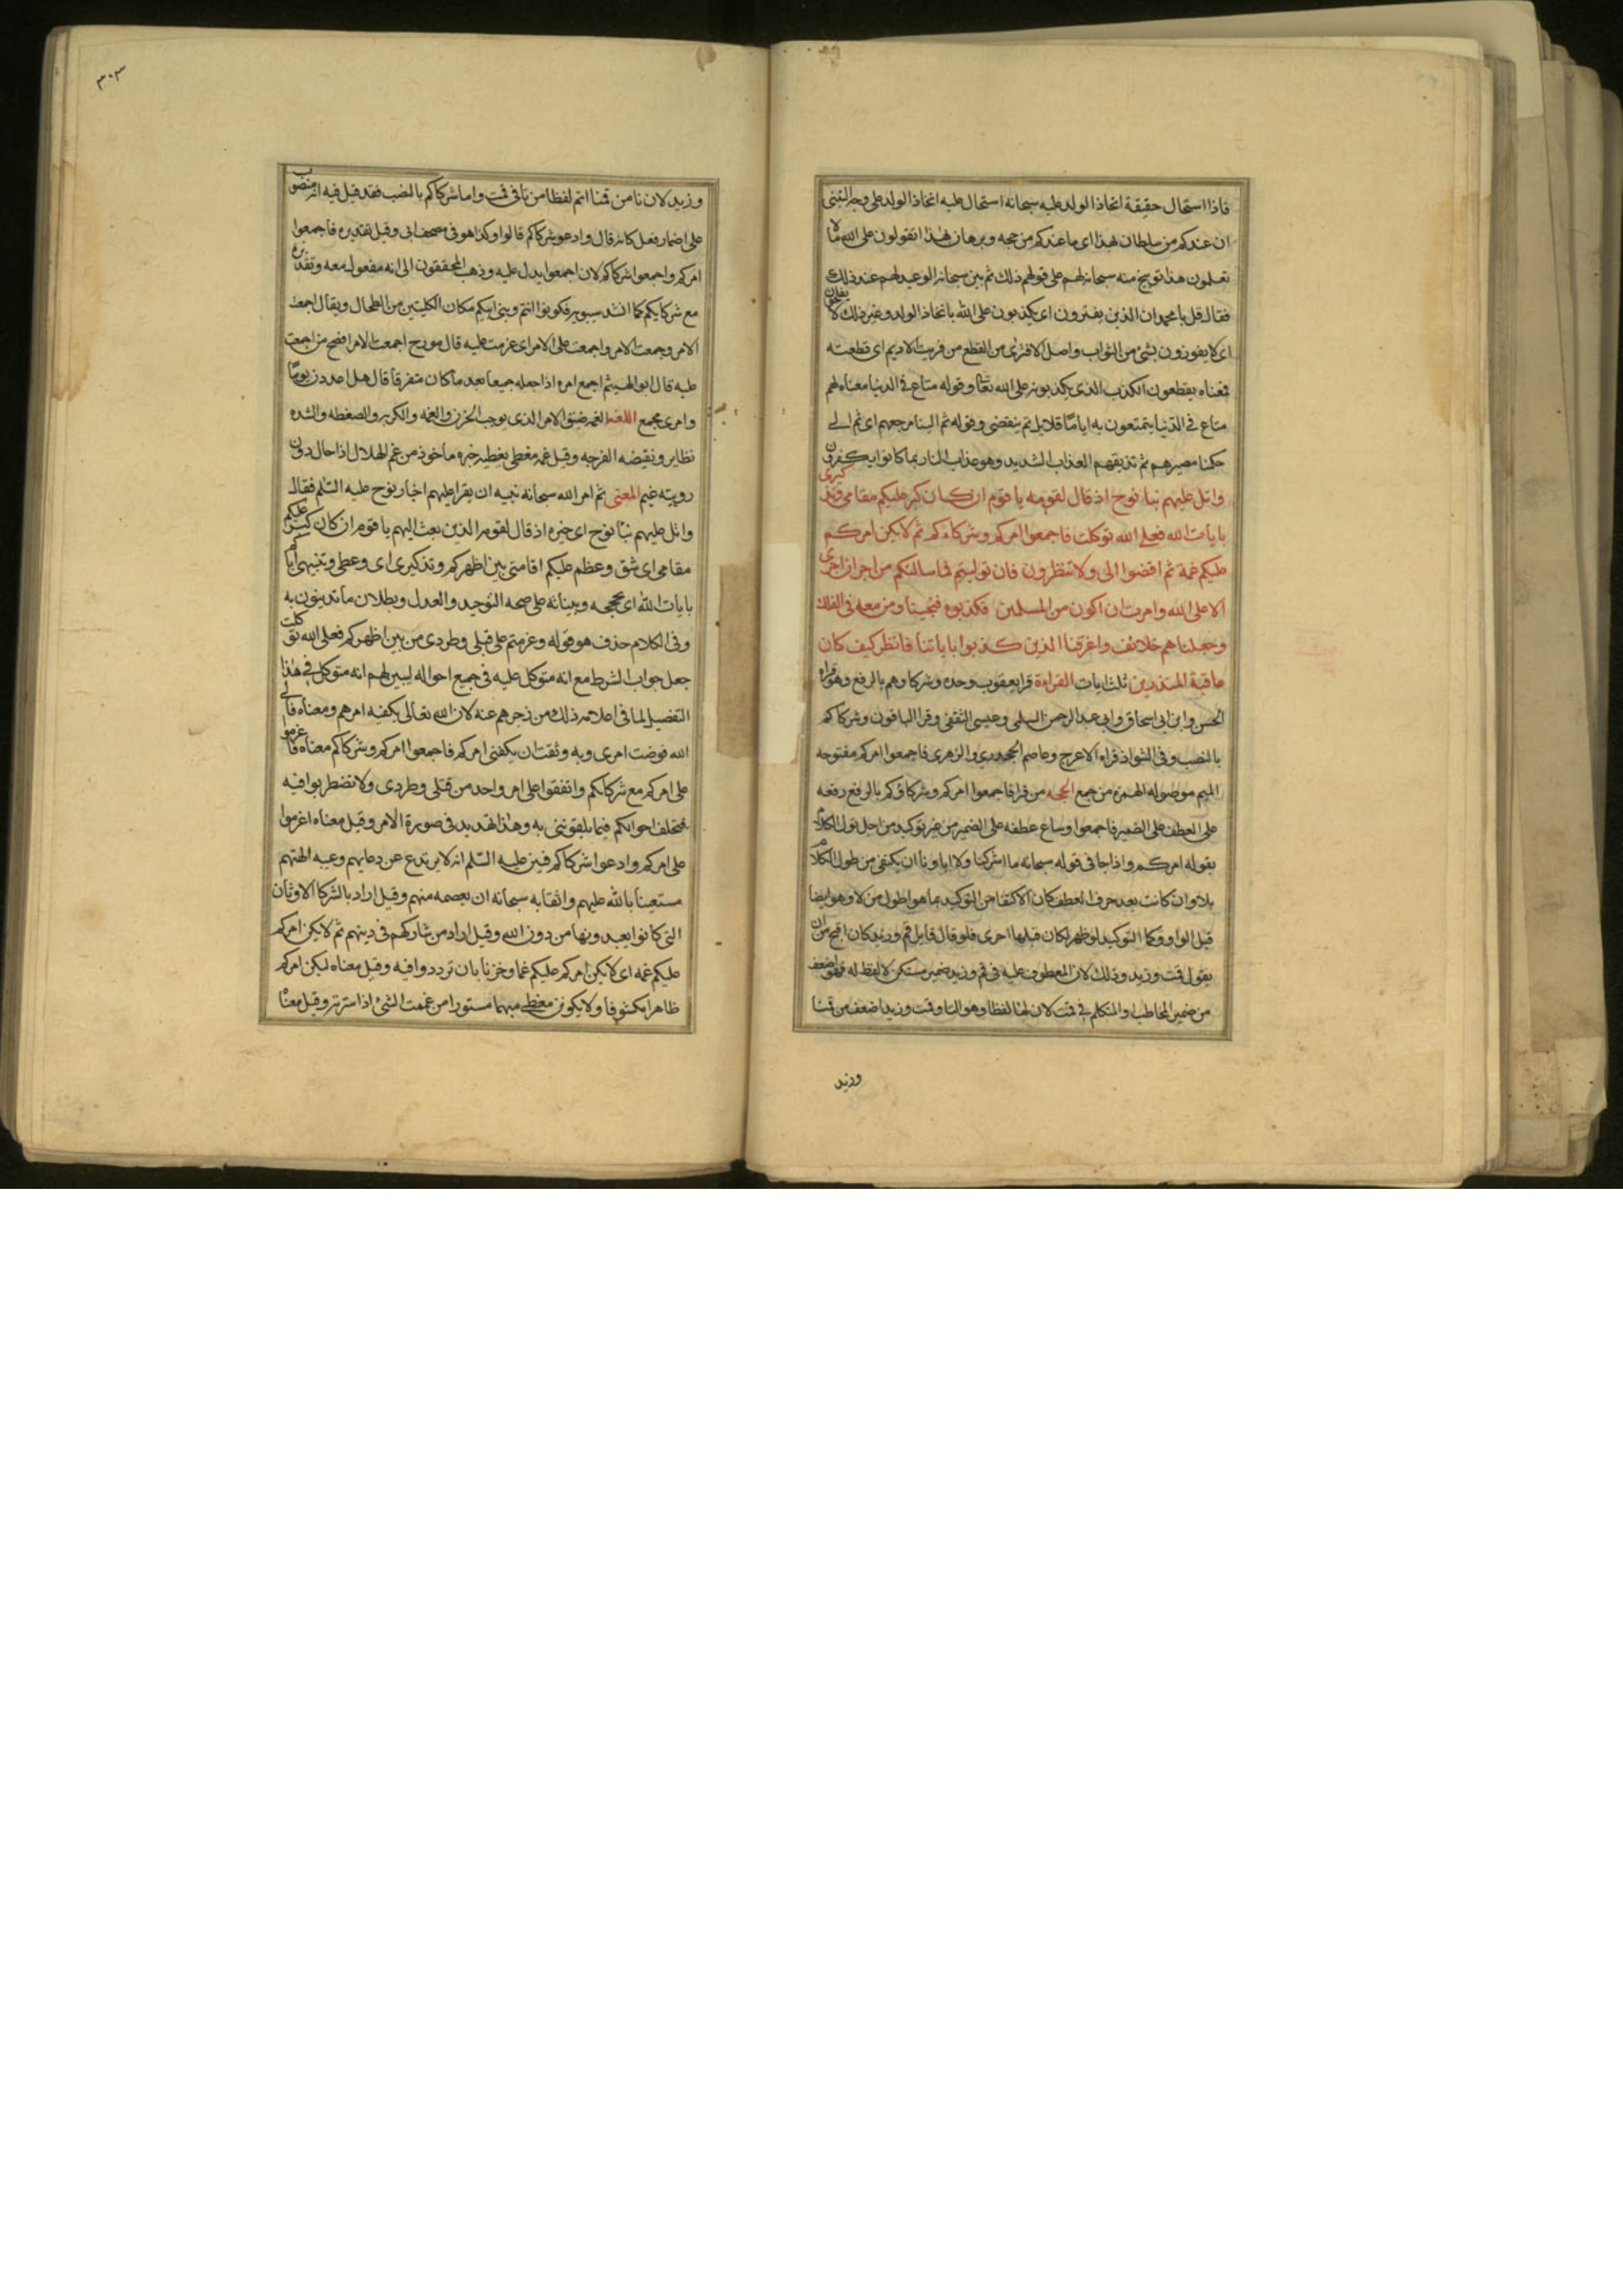 فاذا استحال حقيقة اتخاذ الولد عليه سبحانه استحال عليه اتخاذ الولد على وجه التبنى
ان عندكم من سلطان بهذا اى ما عندكم من حجه و برهان بهذا اتقولون على الله ما لا
تعلمون هذا توبيخ منه سبحانه لهم على قولهم ذلك ثم بين سبحانه الوعيد لهم عند ذلك
فقال قل يا محمد ان الذين يفترون اى يكذبون على الله باتخاذ الولد و غير ذلك لا يفلحون
اى لا يفوزون بشئ من الثواب و اصل الافترى من القطع من فريت الاديم اى قطعته
فمعناه يقطعون الكذب الذى يكذبونه على الله تعالى و قوله متاع فى الدنيا معناه لهم
متاع فى الدنيا يتمتعون به اياما قلايل ثم ينقضى و قوله ثم الينا مرجعهم اى ثم الى
حكمنا مصيرهم ثم نذيقهم العذاب الشديد و هو عذاب النار بما كانوا يكفرون
واتل عليهم نبا نوح اذ قال لقومه يا قوم ان كان كبر عليكم مقامى وتذكيرى
بايات الله فعلى الله توكلت فاجمعوا امركم وشركاءكم ثم لا يكن امركم
عليكم غمة ثم اقضوا الى ولا تنظرون فان توليتم فما سالتكم من اجر ان اجرى
الا على الله وامرت ان اكون من المسلمين فكذبوه فنجيناه ومن معه فى الفلك
وجعلناهم خلائف واغرقنا الذين كذبوا باياتنا فانظر كيف كان
عاقبة المنذرين ثلث ايات القراءة قرا يعقوب وحده و شركاوهم بالرفع و هو قراه
الحسن و ابن ابى اسحاق و ابى عبد الرحمن السلمى و عيسى الثقفى و قرا الباقون و شركاكم
بالنصب و فى الشواذ قراه الاعرج و عاصم الجحدرى و الزهرى فاجمعوا امركم مفتوحه
الميم موصوله الهمزه من جمع الحجه من قرا فاجمعوا امركم و شركاؤكم بالرفع رفعه
على العطف على الضمير فاجمعوا و ساغ عطفه على الضمير من غير توكيد من اجل طول الكلام
بقوله امركم و اذا جا فى قوله سبحانه ما اشركنا ولا اباونا ان يكتفى من طول الكلام
بلا و ان كانت بعد حرف العطف كان الاكتفا من التوكيد بما هو اطول من لا و هو ايضا
قبل الواو و كما التوكيد لو ظهر لكان قبلها احرى فلو قال قايل قم و زيد كان اقبح من ان
يقول قمت و زيد و ذلك لان المعطوف عليه فى قم و زيد ضمير مستكن لا لفظ له فهو اضعف
من ضمير المخاطب او المتكلم فى قمت لان لهذا لفظا و هو التا و قمت و زيد اضعف من قمنا
وزيد
٣٠٣
و زيد لان نا من قمنا اتم لفظا من تا فى قمت و اما شركاكم بالنصب فقد قيل فيه انه منصوب
على اضمار فعل كانه قال و ادعو شركاكم قالوا و كذا هو فى مصحف ابى و قيل تقديره فاجمعوا
امركم و اجمعوا شركاكم لان اجمعوا يدل عليه و ذهب المحققون الى انه مفعول معه و تقديره
مع شركايكم كما انشد سيبويه فكونوا انتم و بنى ابيكم مكان الكليتين من الطحال و يقال اجمعت
الامر و جمعت الامر و اجمعت على الامر اى عزمت عليه قال مورج اجمعت الامر افصح من اجمعت
عليه قال ابو الهيثم اجمع امره اذا جعله جميعا بعد ما كان متفرقا قال هل اغدون يوما
و امرى مجمع اللغه الغمه ضيق الامر الذى يوجب الحزن و الغمه و الكربه و الضغطه و الشده
نظاير و نقيضه الفرجه و قيل غمه مغطى تغطيه حيره ماخوذ من غم الهلال اذا حال دون
رويته غيم المعنى ثم امر الله سبحانه نبيه ان يقرا عليهم اخبار نوح عليه السلم فقال
واتل عليهم نبا نوح اى خبره اذ قال لقومه الذين بعث اليهم يا قوم ان كان كبر عليكم
مقامى اى شق و عظم عليكم اقامتى بين اظهركم و تذكيرى اى و عظى و تنبيهى اياكم
بايات الله اى بحججه و بيناته على صحه التوحيد و العدل و بطلان ما تدينون به
و فى الكلام حذف هو قوله و عزمتم على قتلى و طردى من بين اظهركم فعلى الله توكلت
جعل جواب الشرط مع انه متوكل عليه فى جميع احواله ليبين لهم انه متوكل فى هذا
التفصيل لما فى اعلامه ذلك من زجرهم عنه لان الله تعالى يكفيه امرهم و معناه فالى
الله فوضت امرى و به وثقت ان يكفنى امركم فاجمعوا امركم و شركاكم معناه فاعزموا
على امركم مع شركائكم و اتفقوا على امر واحد من قتلى و طردى و لا تضطربوا فيه
فتختلف احوالكم فيما تلقوننى به و هذا تهديد فى صورة الامر و قيل معناه اعزموا
على امركم و ادعوا شركاكم فبين عليه السلم انه لا يرتدع عن دعايهم و عيبه الهتهم
مستعينا بالله عليهم و اثقا به سبحانه ان يعصمه منهم و قيل اراد بالشركا الاوثان
التى كانوا يعبدونها من دون الله و قيل اراد من شاركهم فى دينهم ثم لا يكن امركم
عليكم غمه اى لا يكن امركم عليكم غما و حزنا بان ترددوا فيه و قيل معناه ليكن امركم
ظاهرا مكشوفا و لا يكونن مغطى مبهما مستورا من غممت الشئ اذا سترته و قيل معناه